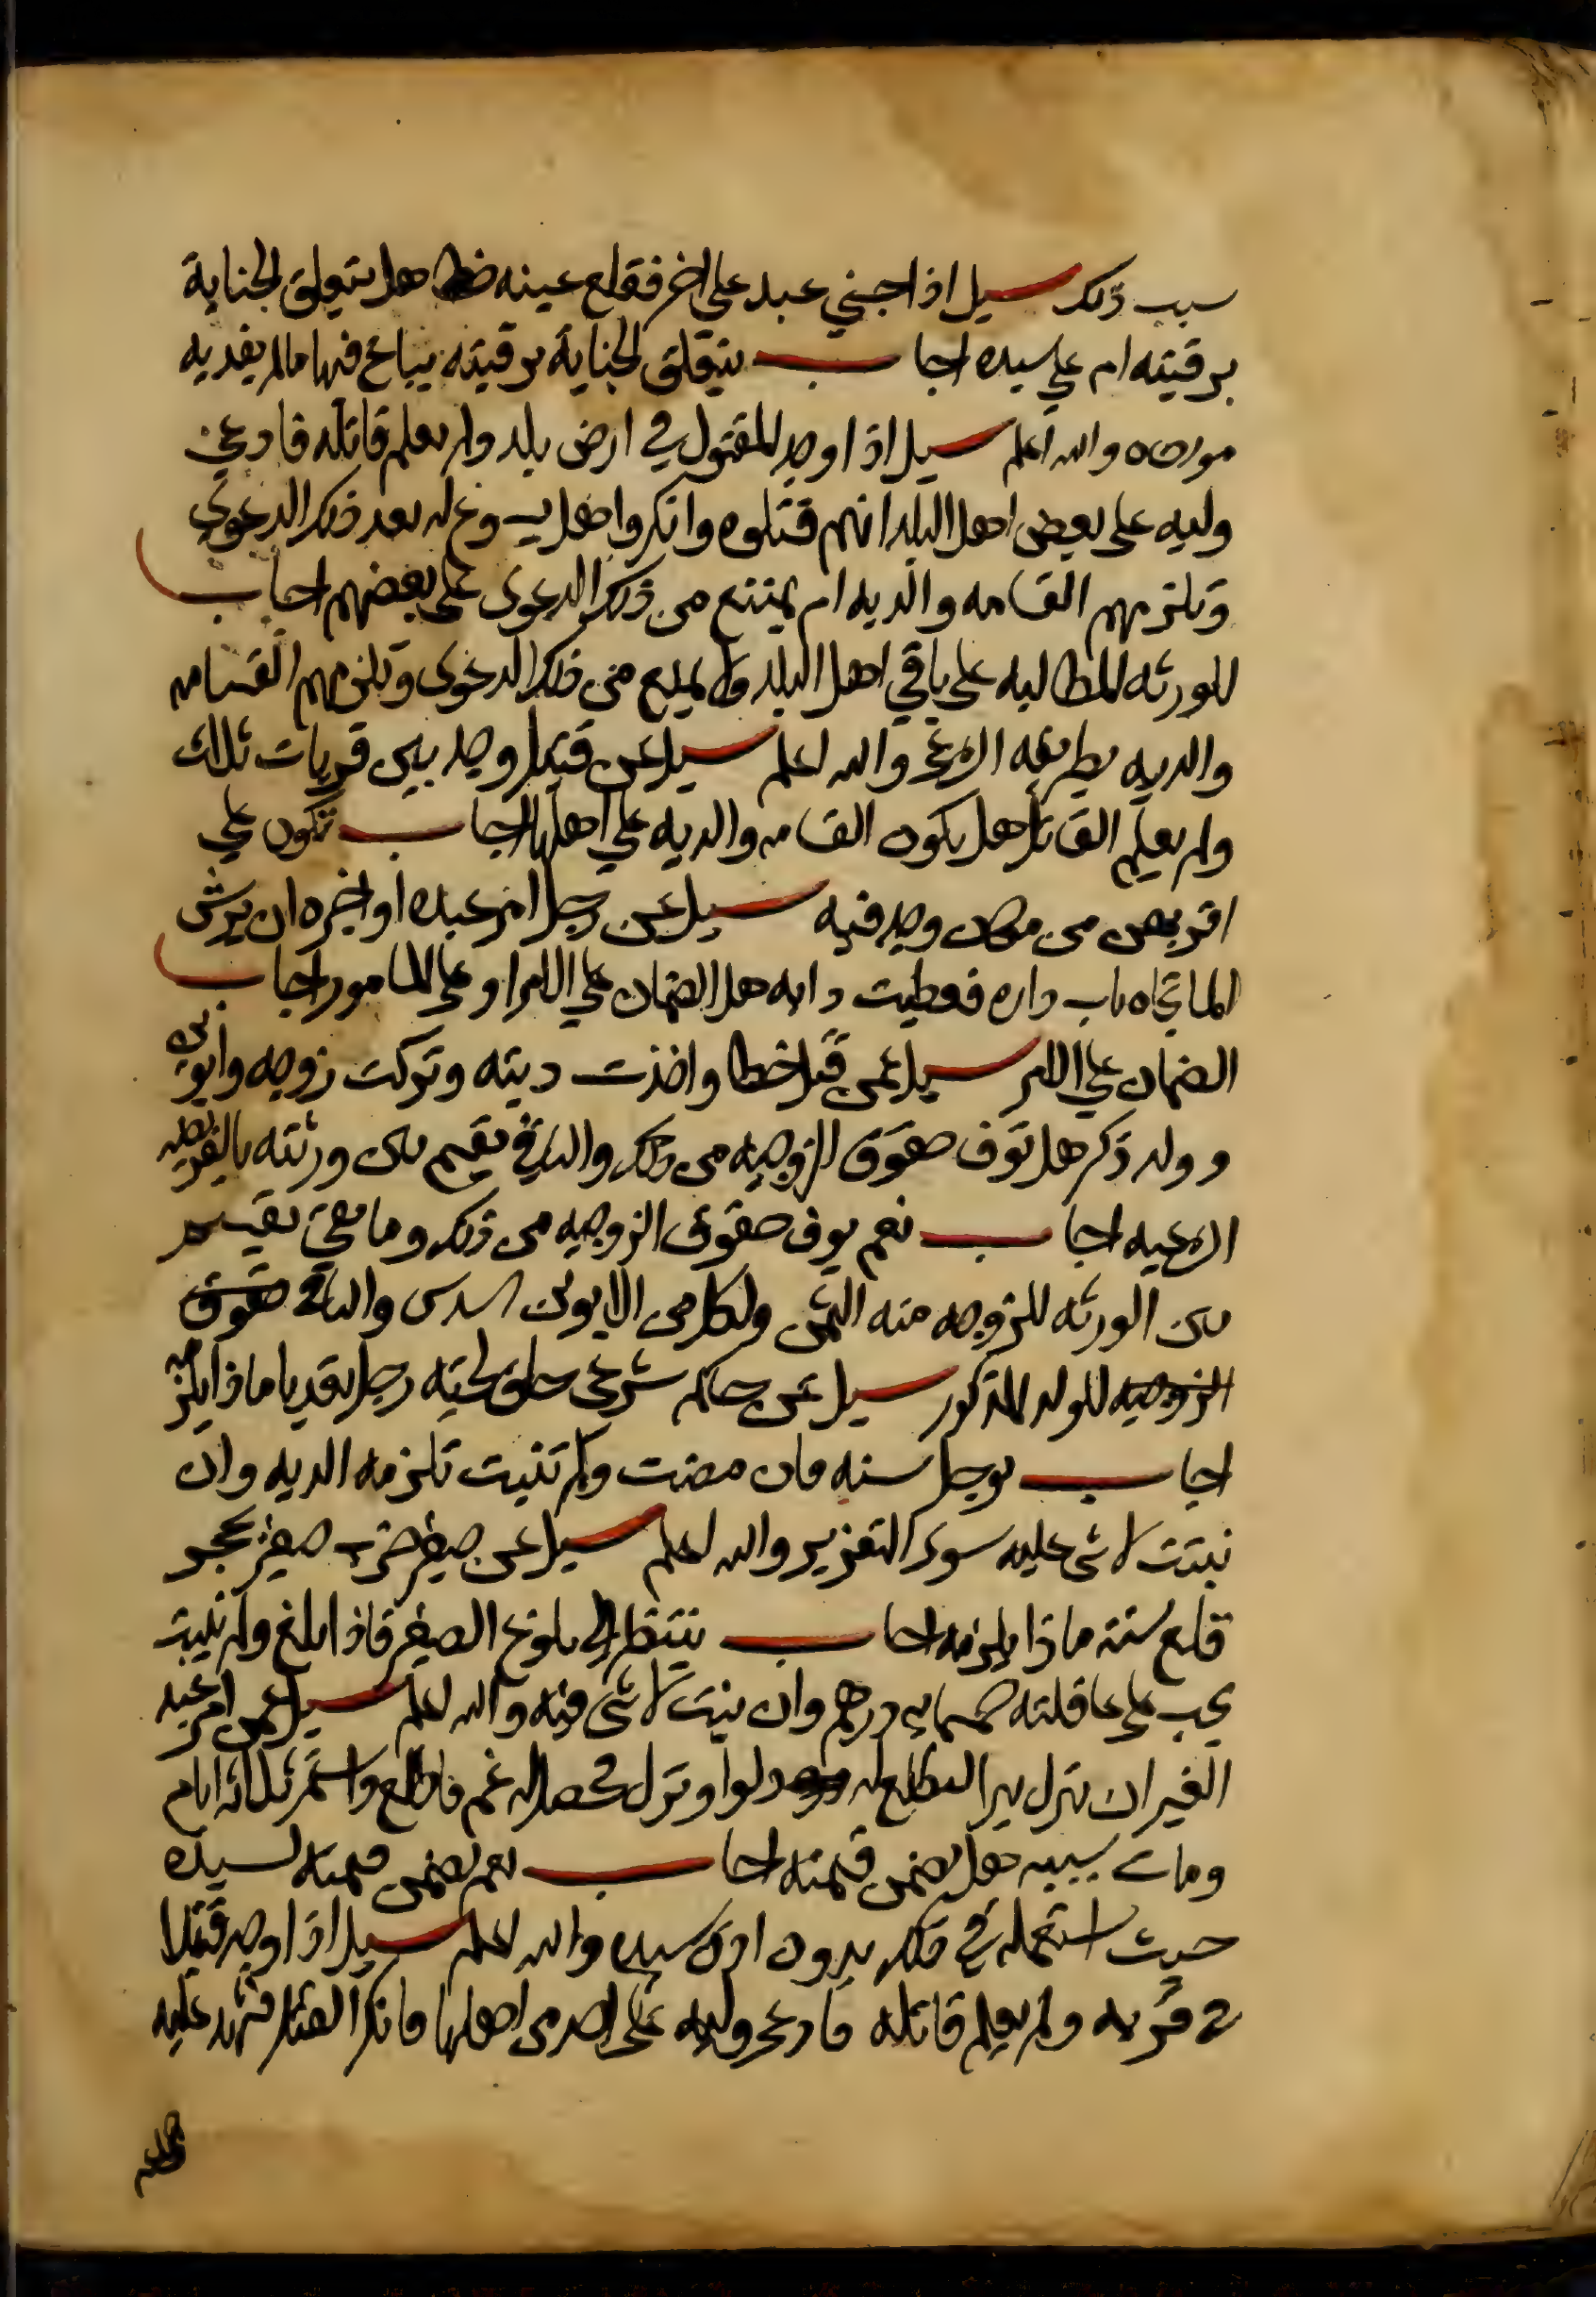 سبب ذلك سيل اذا جني عبد على اخر فقلع عينه خطا هل تتعلق الجناية
برقبته ام علي سيده اجاب يتعلق الجناية برقبته يباع فيها مالم يفديه
مولاه والله اعلم سيل اذا وجد المقتول في ارض بلد ولم يعلم قاتله فادعي
وليه على بعض اهل البلد انهم قتلوه وانكروا هل يسوغ له بعد ذلك الدعوي
وتلزمهم القسامه والديه ام يمتنع من ذلك الدعوى على بعضهم اجاب
للورثه المطالبه على باقي اهل البلد ولا يمنع من ذلك الدعوى وتلزمهم القسامه
والديه بطريقه الشرعي والله اعلم سيل عن قتيل وجد بين قريات ثلاث
ولم يعلم القاتل هل يكون القسامه والديه علي اهلها اجاب تكون علي
اقربهن من مكان وجد فيه سيل عن رجل امر عبده او اخيره ان يرش
الما تجاه باب داره فعطبت دابه هل الضمان علي الامر او على المامور اجاب
الضمان علي الامر سيل عمن قتل خطا واخذت ديته وتركت زوجه وابوين
وولد ذكر هل توف حقوق الزوجيه من ذلك والباقي يقسم بين ورثته بالفريضه
الشرعيه اجاب نعم يوف حقوق الزوجيه من ذلك وما بقي يقسم
بين الورثه للزوجه منه الثمن ولكل من الابوين السدس والباقي حقوق
الزوجيه للولد المذكور سيل عن حاكم شرعى حلق لحيته رجل تعديا ماذا يلزمه
اجاب يوجل سنه فان مضت ولم تنبت تلزمه الديه وان
نبتت لا شى عليه سوى التعزير والله اعلم سيل عن صغير ضرب صغير بحجر
قلع سنه ماذا يلزمه اجاب ينتظر الى بلوغ الصغير فاذا بلغ ولم تنبت
يجب على عاقلته خمسمايه درهم وان نبتت لا شى فيه والله اعلم سيل عمن امر عبد
الغير ان ينزل بير ليطلع له دلوا ونزل فحصل له غم فاطلع واستمر ثلاثه ايام
ومات بسببه هل يضمن قيمته اجاب نعم يضمن قيمته لسيده
حيث استعمله في ذلك بدون اذن سيده والله اعلم سيل اذا وجد قتيلا
في قريه ولم يعلم قاتله فادعى وليه على احد من اهلها فانكر القتل فشهد عليه